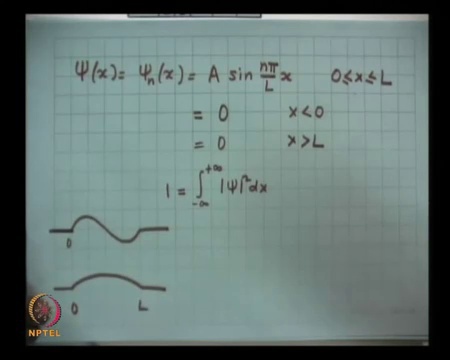 Ψ(x) = Ψₙ(x) = A sin nπ/L x 0 ≤ x ≤ L
= 0 x < 0
= 0 x > L
1 = ∫₋∞⁺∞ |Ψ|² dx
0
0 L
NPTEL